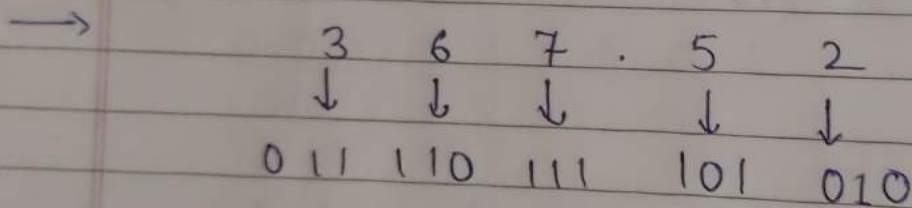 → 3 6 7 . 5 2
↓ ↓ ↓ ↓ ↓
011 110 111 101 010